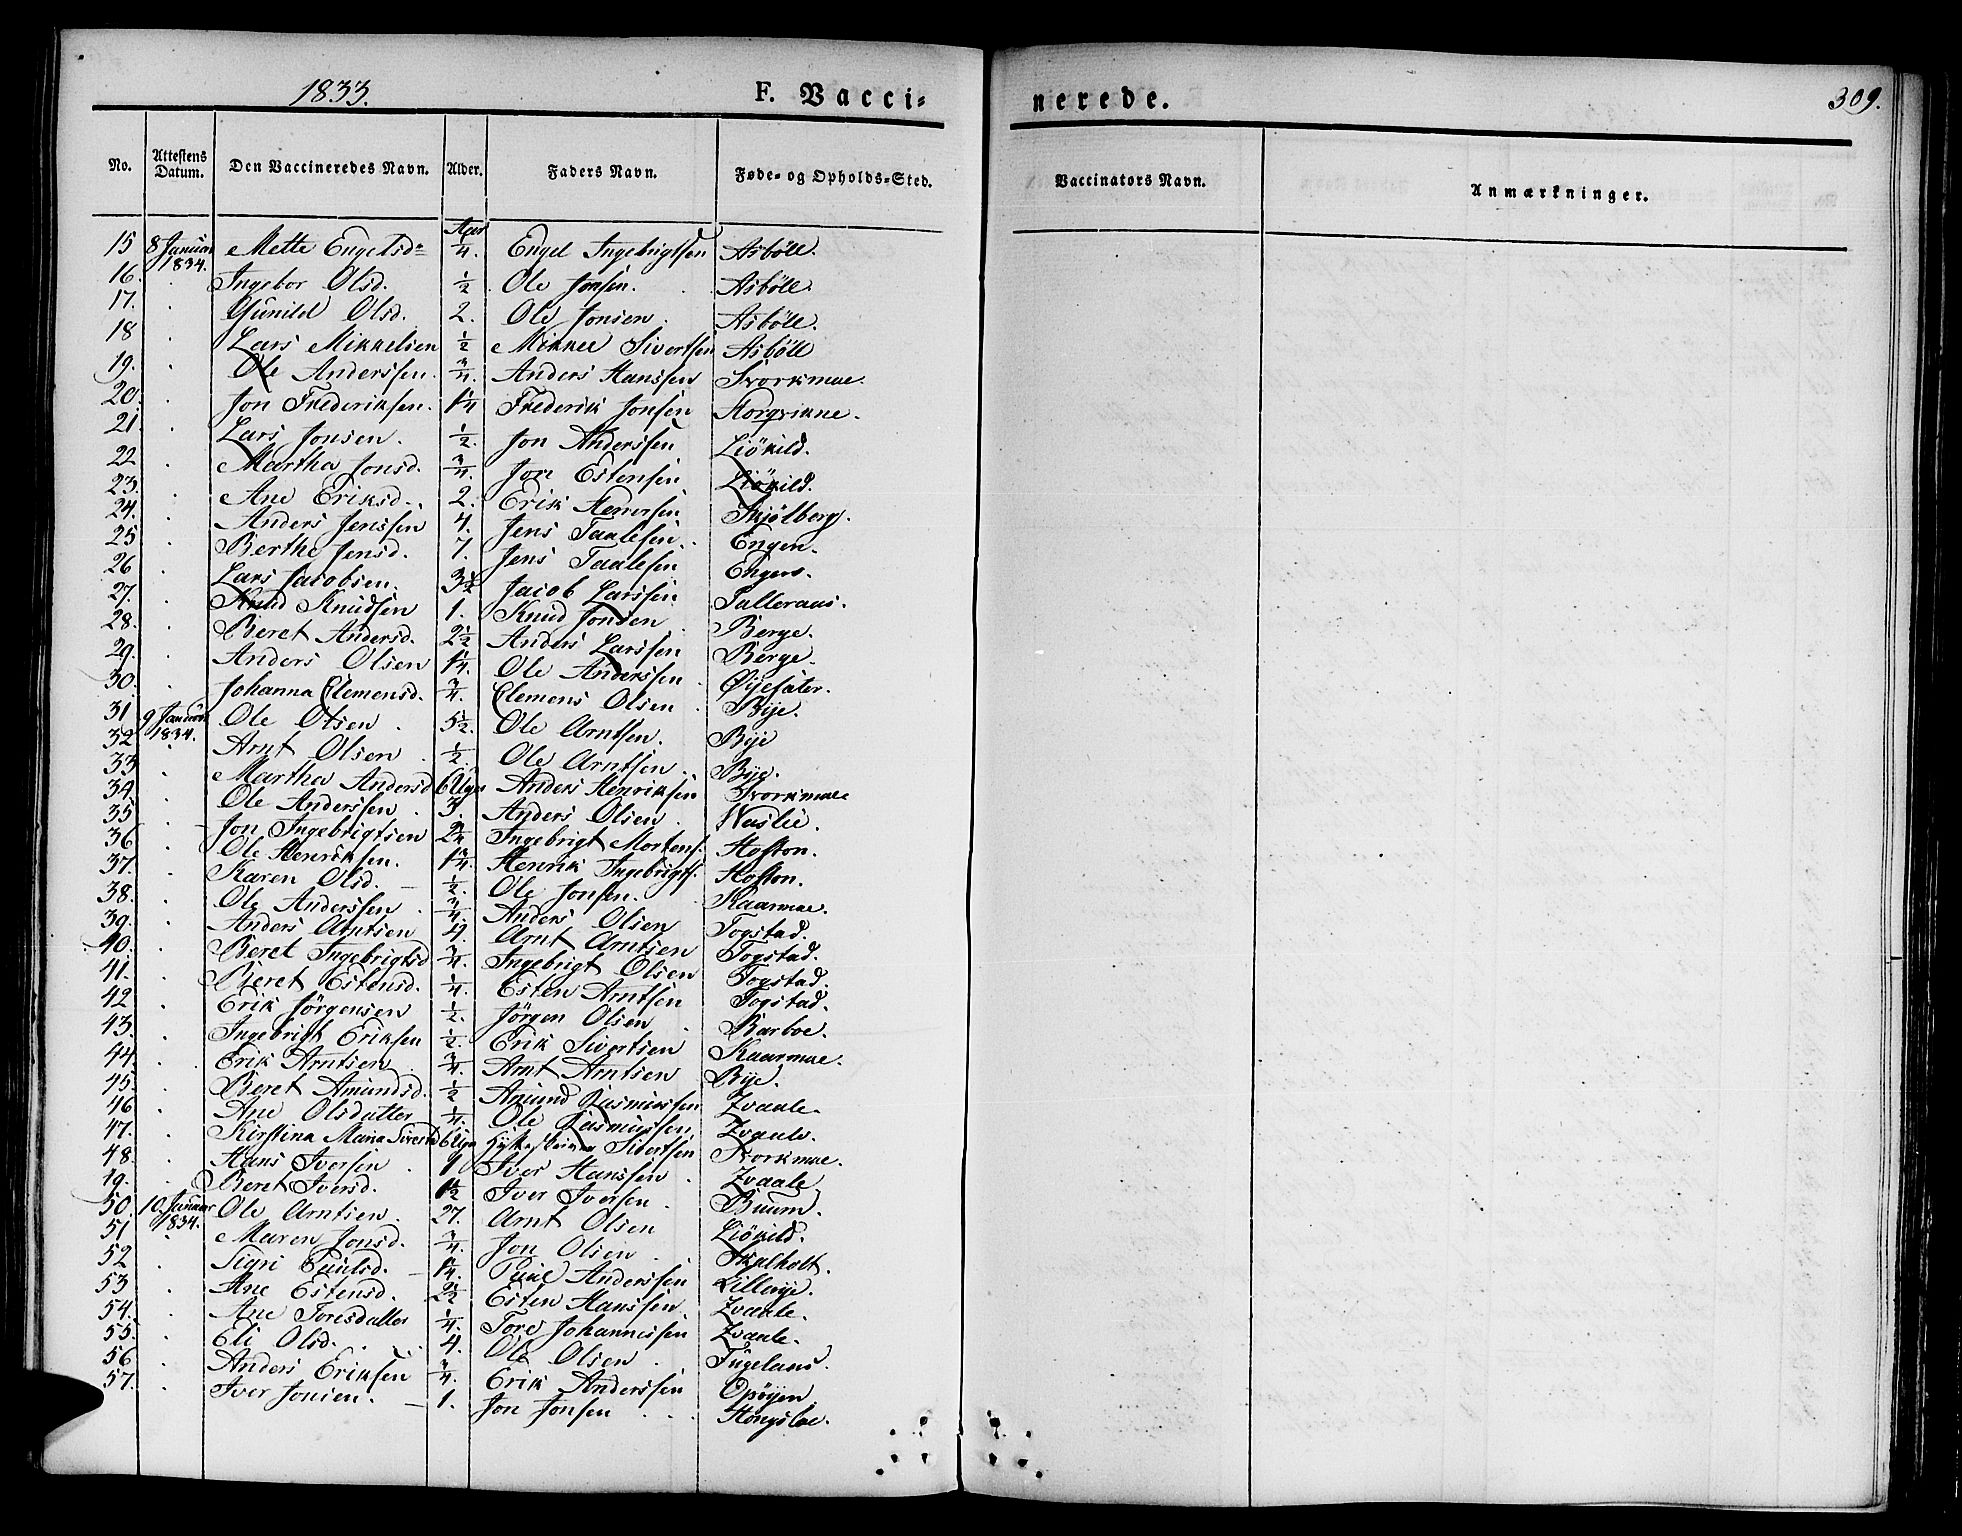 1833. F. Vacci- nerede. 309.
No. Attestens Datum. Den Vaccineredes Navn. Alder. Faders Navn. Føde- og Opholds-Sted. Vaccinators Navn. Anmærkninger.
15 8 Januar 1834. Mette Engelsd. Aar ¼. Engel Ingebrigtsen Asbøll.
16. Ingebor Olsd. ½ Ole Jonsen. Asbøll.
17. Gunild Olsd. 2. Ole Jonsen. Asbøll.
18 Lars Mikkelsen ½ Mikkel Sivertsen Asbøll
19. Ole Anderssen. ¾. Anders Hanssen Svorkmoe.
20. Jon Frederiksen. 1¼ Frederik Jonsen
21. Lars Jonsen. ½. Jon Anderssen Liøkild.
22 Martha Jonsd. ¾. Jon Estensen Liøkild.
23. Ane Eriksd. 2. Erik Skjølberg.
24. Anders Jenssen 4. Jens Taalesen. Engen.
25 Berthe Jensd. 7. Jens Taalesen Engen.
26 Lars Jacobsen. 3½ Jacob Larssen
27. Knud Knudsen 1. Knud Jonsen Berge.
28. Beret Andersd. 2½ Anders Larssen Berge.
29. Anders Olsen 1¼. Ole Anderssen Øyesæter.
30. Johanna Clemensd. ¾. Clemens Olsen Bye.
31 9 Januar 1834. Ole Olsen 5½. Ole Arntsen. Bye
32 Arnt Olsen ½. Ole Arntsen. Bye.
33 Martha Andersd 6 Ugr Anders Henriksen Svorkmoe
34. Ole Anderssen. 3. Anders Olsen. Waslie.
35 Jon Ingebrigtsen 2¼ Ingebrigt Mortens. Hoston.
36 Ole Henriksen. 1¾. Henrik Ingebrigts. Hoston.
37. Karen Olsd. ½. Ole Jonsen. Kaarmoe.
38. Ole Anderssen ¾. Anders Olsen Togstad.
39. Anders Arntsen 4. Arnt Arntsen Togstad.
40. Beret Ingebrigtsd ¾. Ingebrigt Olsen Togstad.
41. Beret Estensd. ¼. Esten Arntsen Togstad.
42 Erik Jørgensen ½. Jørgen Olsen Barboe.
43. Ingebrigt Eriksen ½. Erik Sivertsen Kaarmoe.
44. Erik Arntsen ¾. Arnt Arntsen Bye.
45. Beret Amundsd. ½ Amund Rasmussen Zvaale.
46 Ane Olsdatter ¼. Ole Rasmussen Zvaale.
47. Kirstina Maria Sivertsd 6 Ugr Sivertsen Svorkmoe.
48. Hans Iversen 1 Iver Hanssen Zvaale
49. Beret Iversd. 1½ Iver Iversen Buum.
50. 10. Januar 1834. Ole Arntsen 27. Arnt Olsen Liøkild.
51 Maren Jonsd. ¾. Jon Olsen Skalholt.
52 Sigri Paulsd. 1¼. Paul Anderssen Lillevye.
53 Ane Estensd. 2½ Esten Hanssen Zvaale.
54. Ane Toresdatter ¼. Tore Johannessen Zvaale.
55. Eli Olsd. 4. Ole Olsen Fugelaas.
56 Anders Eriksen ¾. Erik Anderssen Opøyen
57. Iver Jonsen. 1. Jon Jonsen Hongsloe.